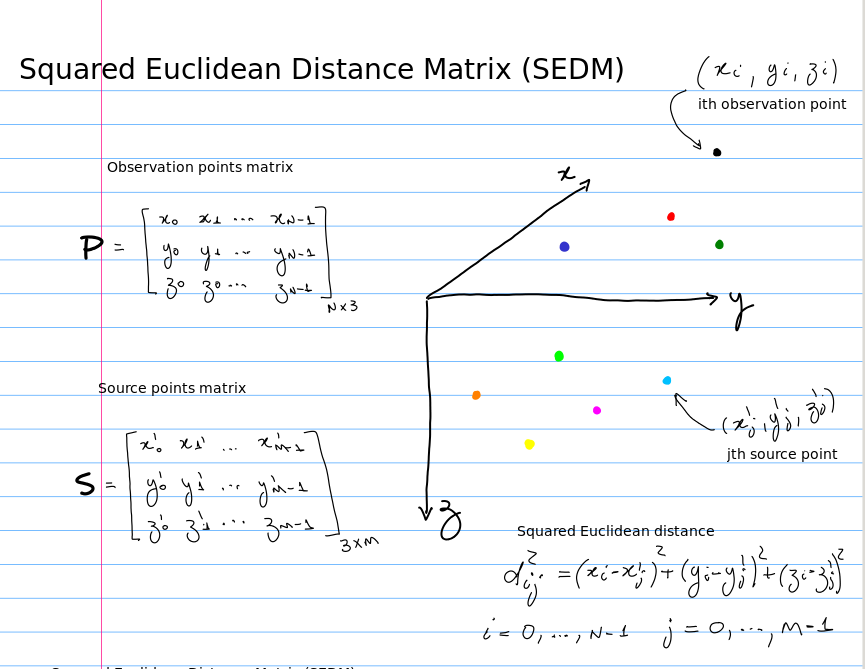 Squared Euclidean Distance Matrix (SEDM)
(xi, yi, zi)
ith observation point
Observation points matrix
P = [ x0 x1 ... xN-1
y0 y1 ... yN-1
z0 z0 ... zN-1 ] N×3
x
y
z
Source points matrix
S = [ x'0 x1' ... x'M-1
y'0 y'1 ... y'M-1
z'0 z'1 ... zM-1 ] 3×M
(x'j, y'j, z'j)
jth source point
Squared Euclidean distance
d²ij = (xi-x'j)² + (yi-y'j)² + (zi-z'j)²
i = 0, ..., N-1 j = 0, ..., M-1
Squared Euclidean Distance Matrix (SEDM)